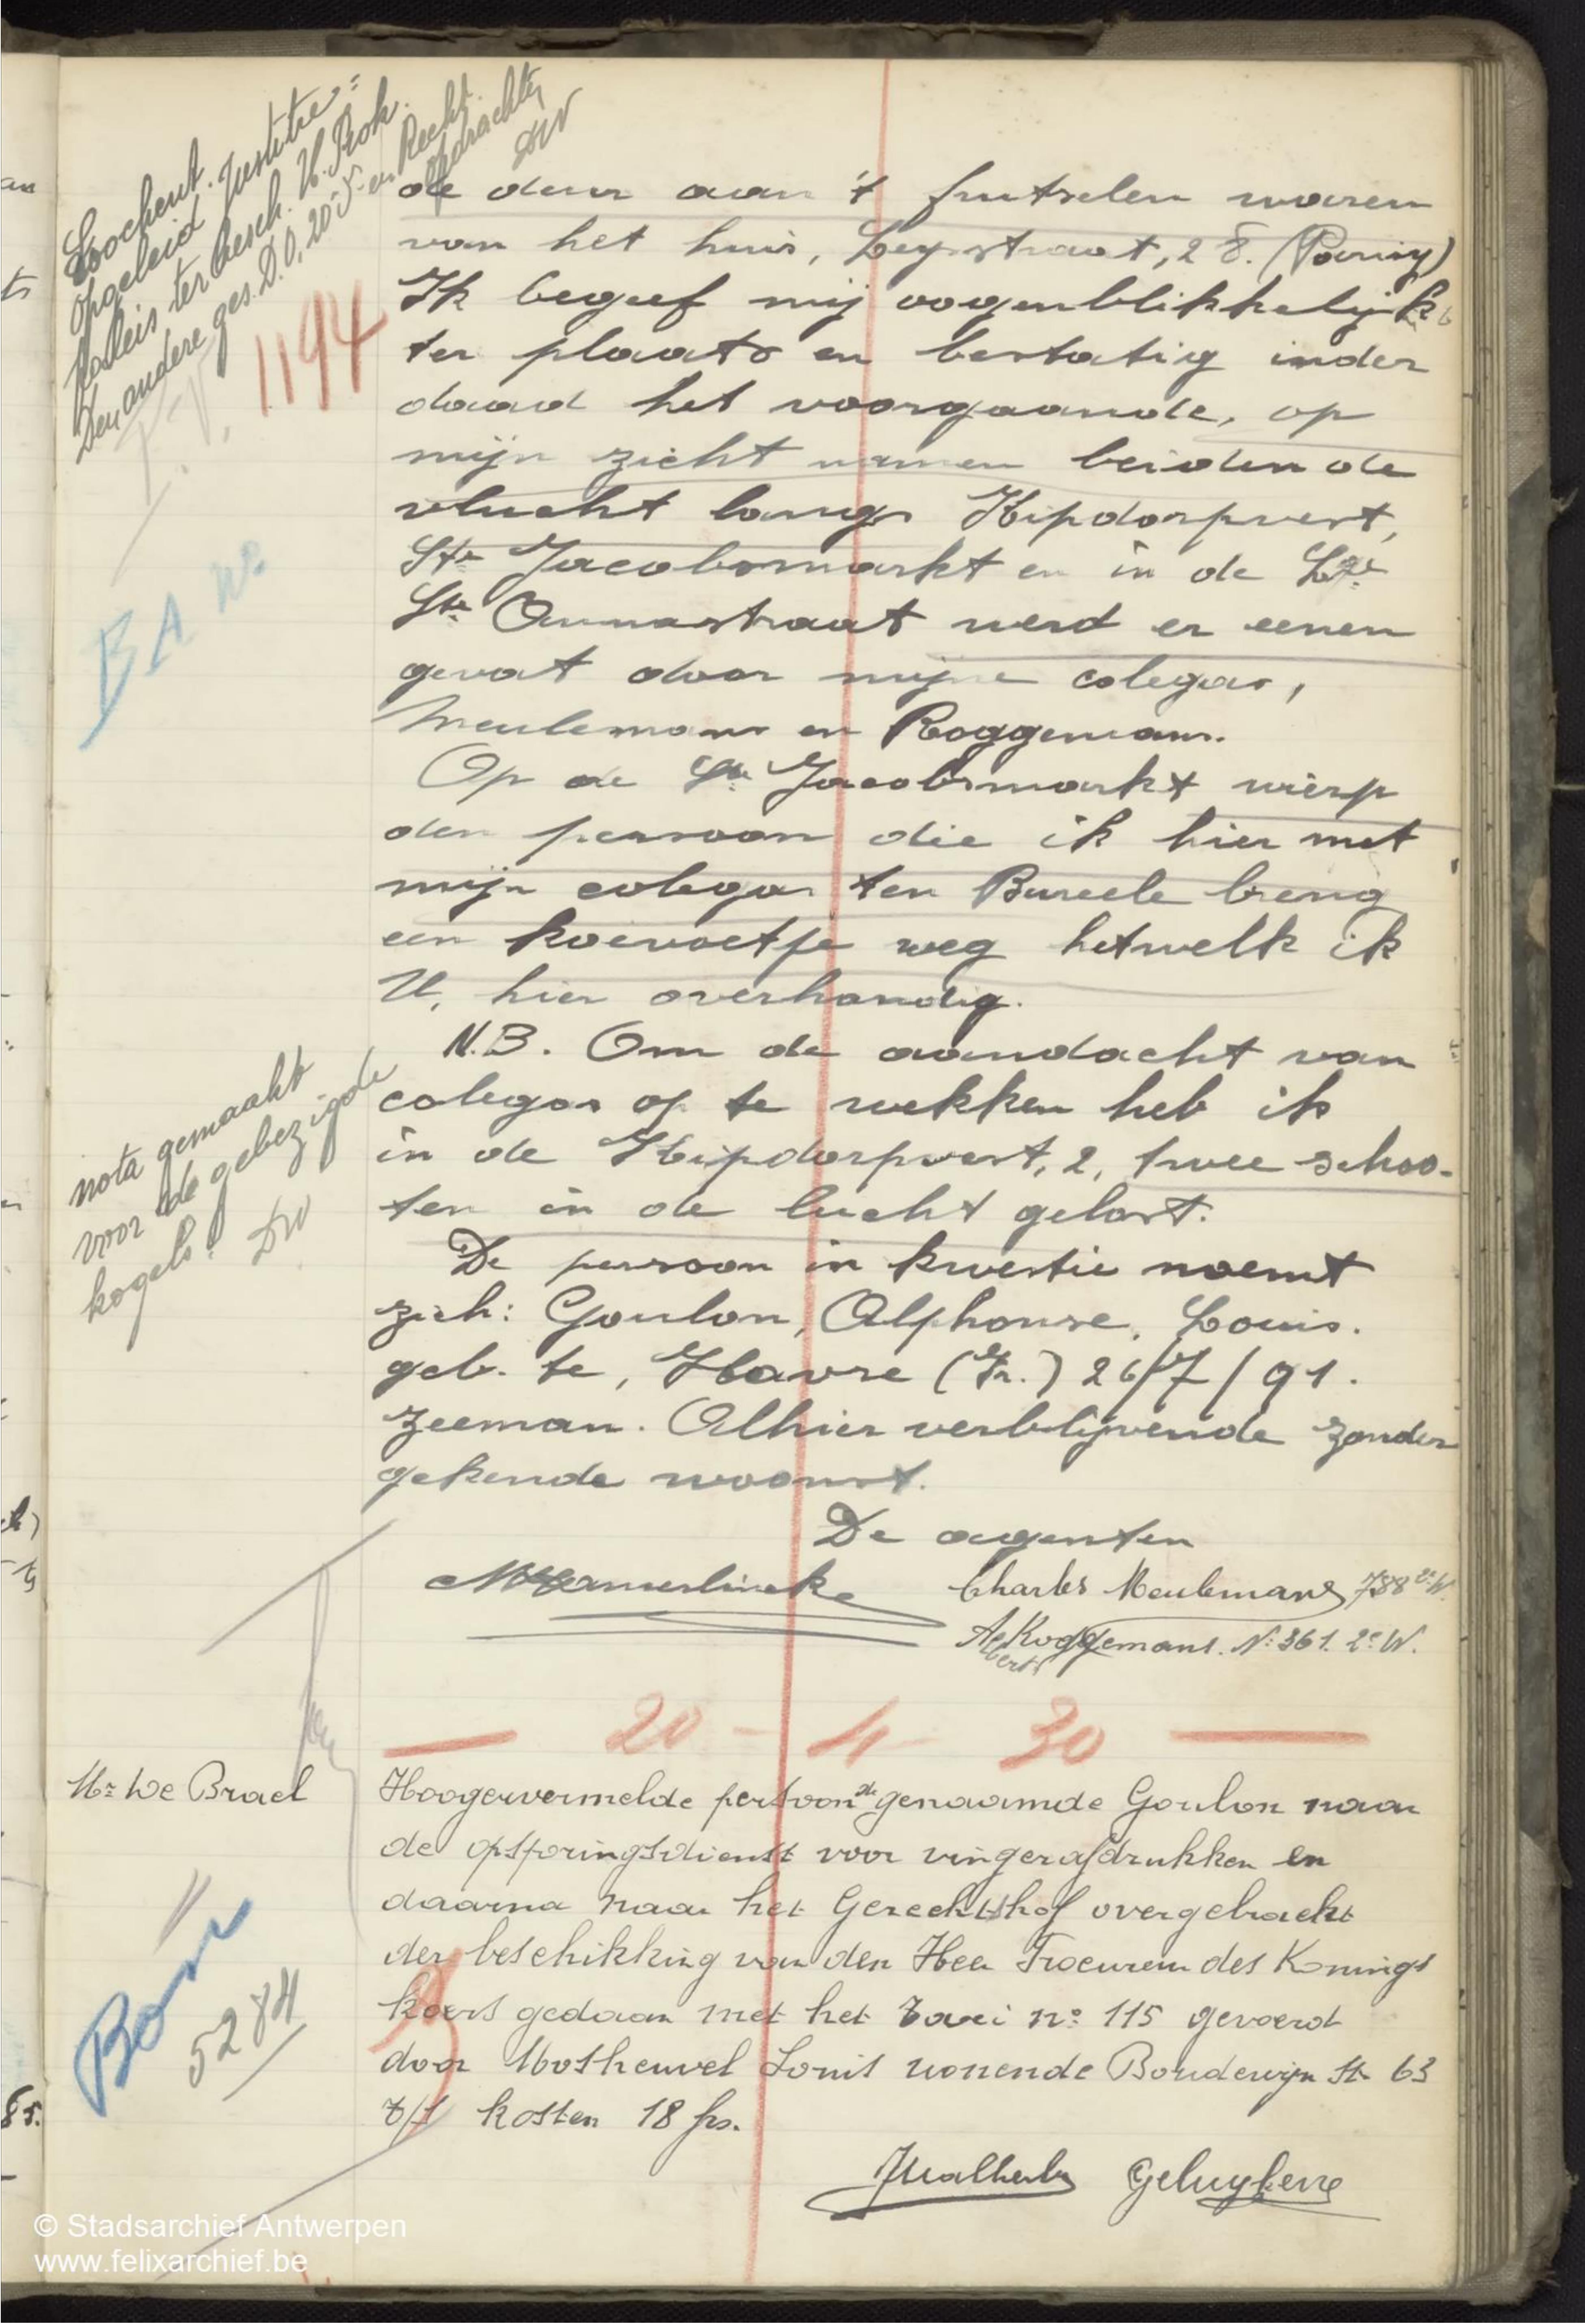 Loochent. Justitie =
Opgeleid
paleis ter besch. H. Prok.
Den andere ges. D.O. 20-5- en Recht.
opdrachten
DW
1194
de deur aan 't futselen waren
van het huis, Leysstraat, 28. (
Ik begeef mij oogenblikkelijk
ter plaats en bestatig inder
daad het voorgaande, op
mijn zicht namen beiden de
vlucht langs Kipdorpvest,
Ste Jacobsmarkt en in de Lge
Ste Annastraat werd er eenen
gevat door mijne colegas,
Meulemans en Roggemans.
Op de St. Jacobsmarkt wierp
den persoon die ik hier met
mijn colegas ten Bureele breng
een koevoetje weg hetwelk ik
U, hier overhandig.
BA No
N.B. Om de aandacht van
colegas op te wekken heb ik
in de Kipdorpvest, 2, twee schoo-
ten in de lucht gelost.
nota gemaakt
voor de gebezigde
kogels. DW
De persoon in kwestie noemt
zich: Goulon, Alphonse, Louis.
geb. te, Havre (Fr.) 26/7/91.
zeeman. Alhier verblijvende zonder
gekende woonst.
De agenten
Charles Meulemans 788 2e W.
Albert Roggemans. No 361. 2e W.
20 - 4 - 30
Mr De Brael
Hoogervermelde persoon de genaamde Goulon naar
de opsporingsdienst voor vingerafdrukken en
daarna naar het Gerechtshof overgebracht
der beschikking van den Heer Procureur des Konings
koers gedaan met het taxi no 115 gevoerd
door Mosheuvel Louis wonende Boudewijn St. 63
t/s kosten 18 frs.
Bon
5284
JMalherbe Geluykens
85.
© Stadsarchief Antwerpen
www.felixarchief.be